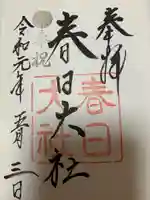 奉拝
春日大社
春日
大社
祝
令和元年五月三日